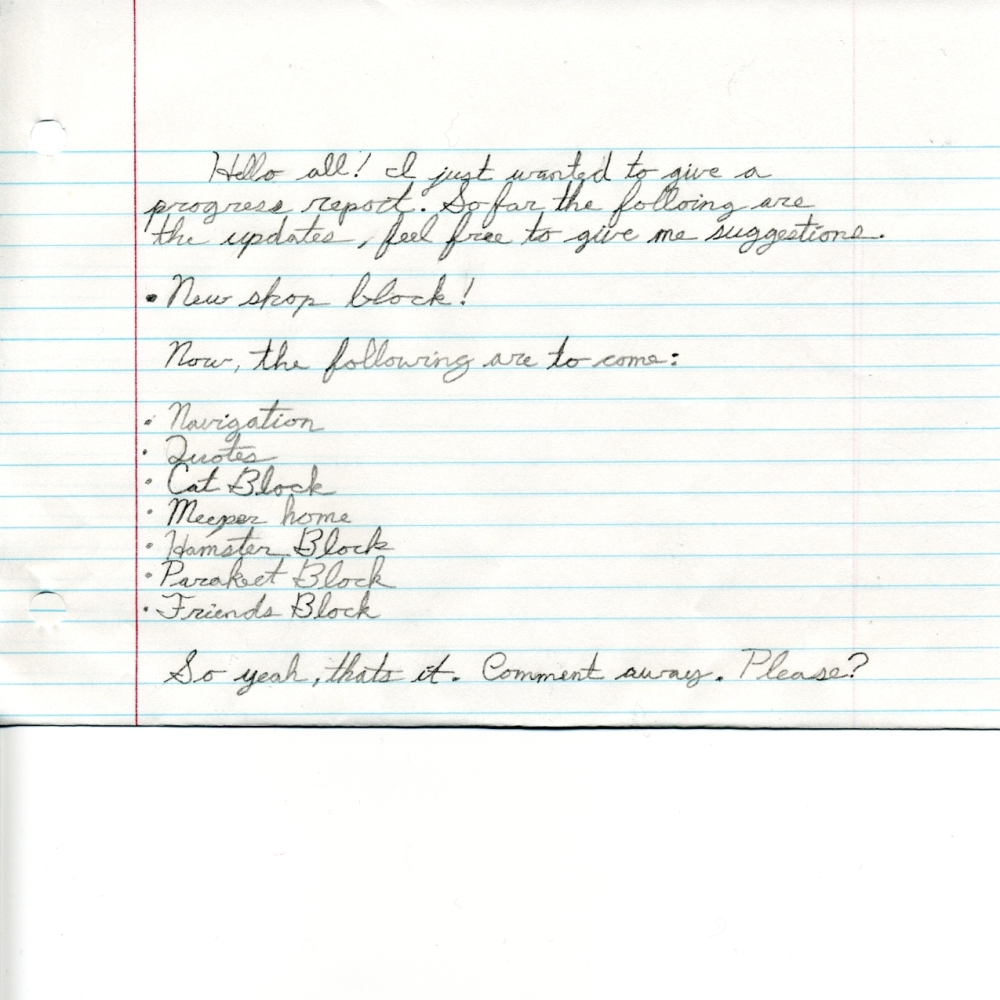 Hello all! I just wanted to give a
progress report. So far the folloing are
the updates, feel free to give me suggestions.
• New shop block!
Now, the following are to come:
• Navigation
• Quotes
• Cat Block
• Meeper home
• Hamster Block
• Parakeet Block
• Friends Block
So yeah, thats it. Comment away. Please?